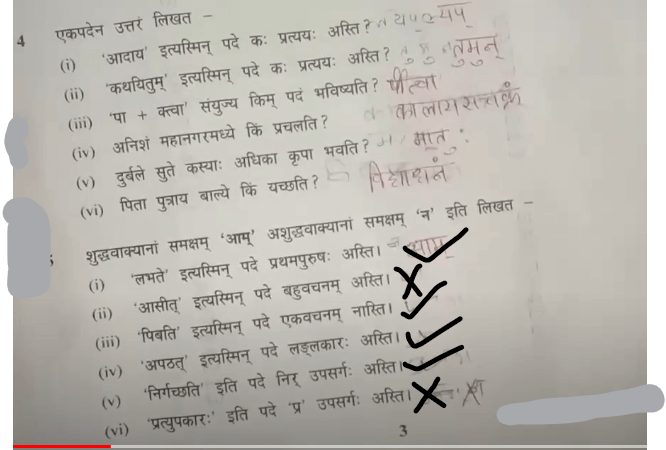 4 एकपदेन उत्तरं लिखत –
(i) 'आदाय' इत्यस्मिन् पदे कः प्रत्ययः अस्ति? ल्यप्
(ii) 'कथयितुम्' इत्यस्मिन् पदे कः प्रत्ययः अस्ति? तुमुन्
(iii) 'पा + क्त्वा' संयुज्य किम् पदं भविष्यति? पीत्वा
(iv) अनिशं महानगरमध्ये किं प्रचलति? कालायसचक्रं
(v) दुर्बले सुते कस्याः अधिका कृपा भवति? मातुः
(vi) पिता पुत्राय बाल्ये किं यच्छति? विद्याधनं
शुद्धवाक्यानां समक्षम् 'आम्' अशुद्धवाक्यानां समक्षम् 'न' इति लिखत –
(i) 'लभते' इत्यस्मिन् पदे प्रथमपुरुषः अस्ति। आम्
(ii) 'आसीत्' इत्यस्मिन् पदे बहुवचनम् अस्ति।
(iii) 'पिबति' इत्यस्मिन् पदे एकवचनम् नास्ति।
(iv) 'अपठत्' इत्यस्मिन् पदे लङ्लकारः अस्ति।
(v) 'निर्गच्छति' इति पदे निर् उपसर्गः अस्ति।
(vi) 'प्रत्युपकारः' इति पदे 'प्र' उपसर्गः अस्ति।
3